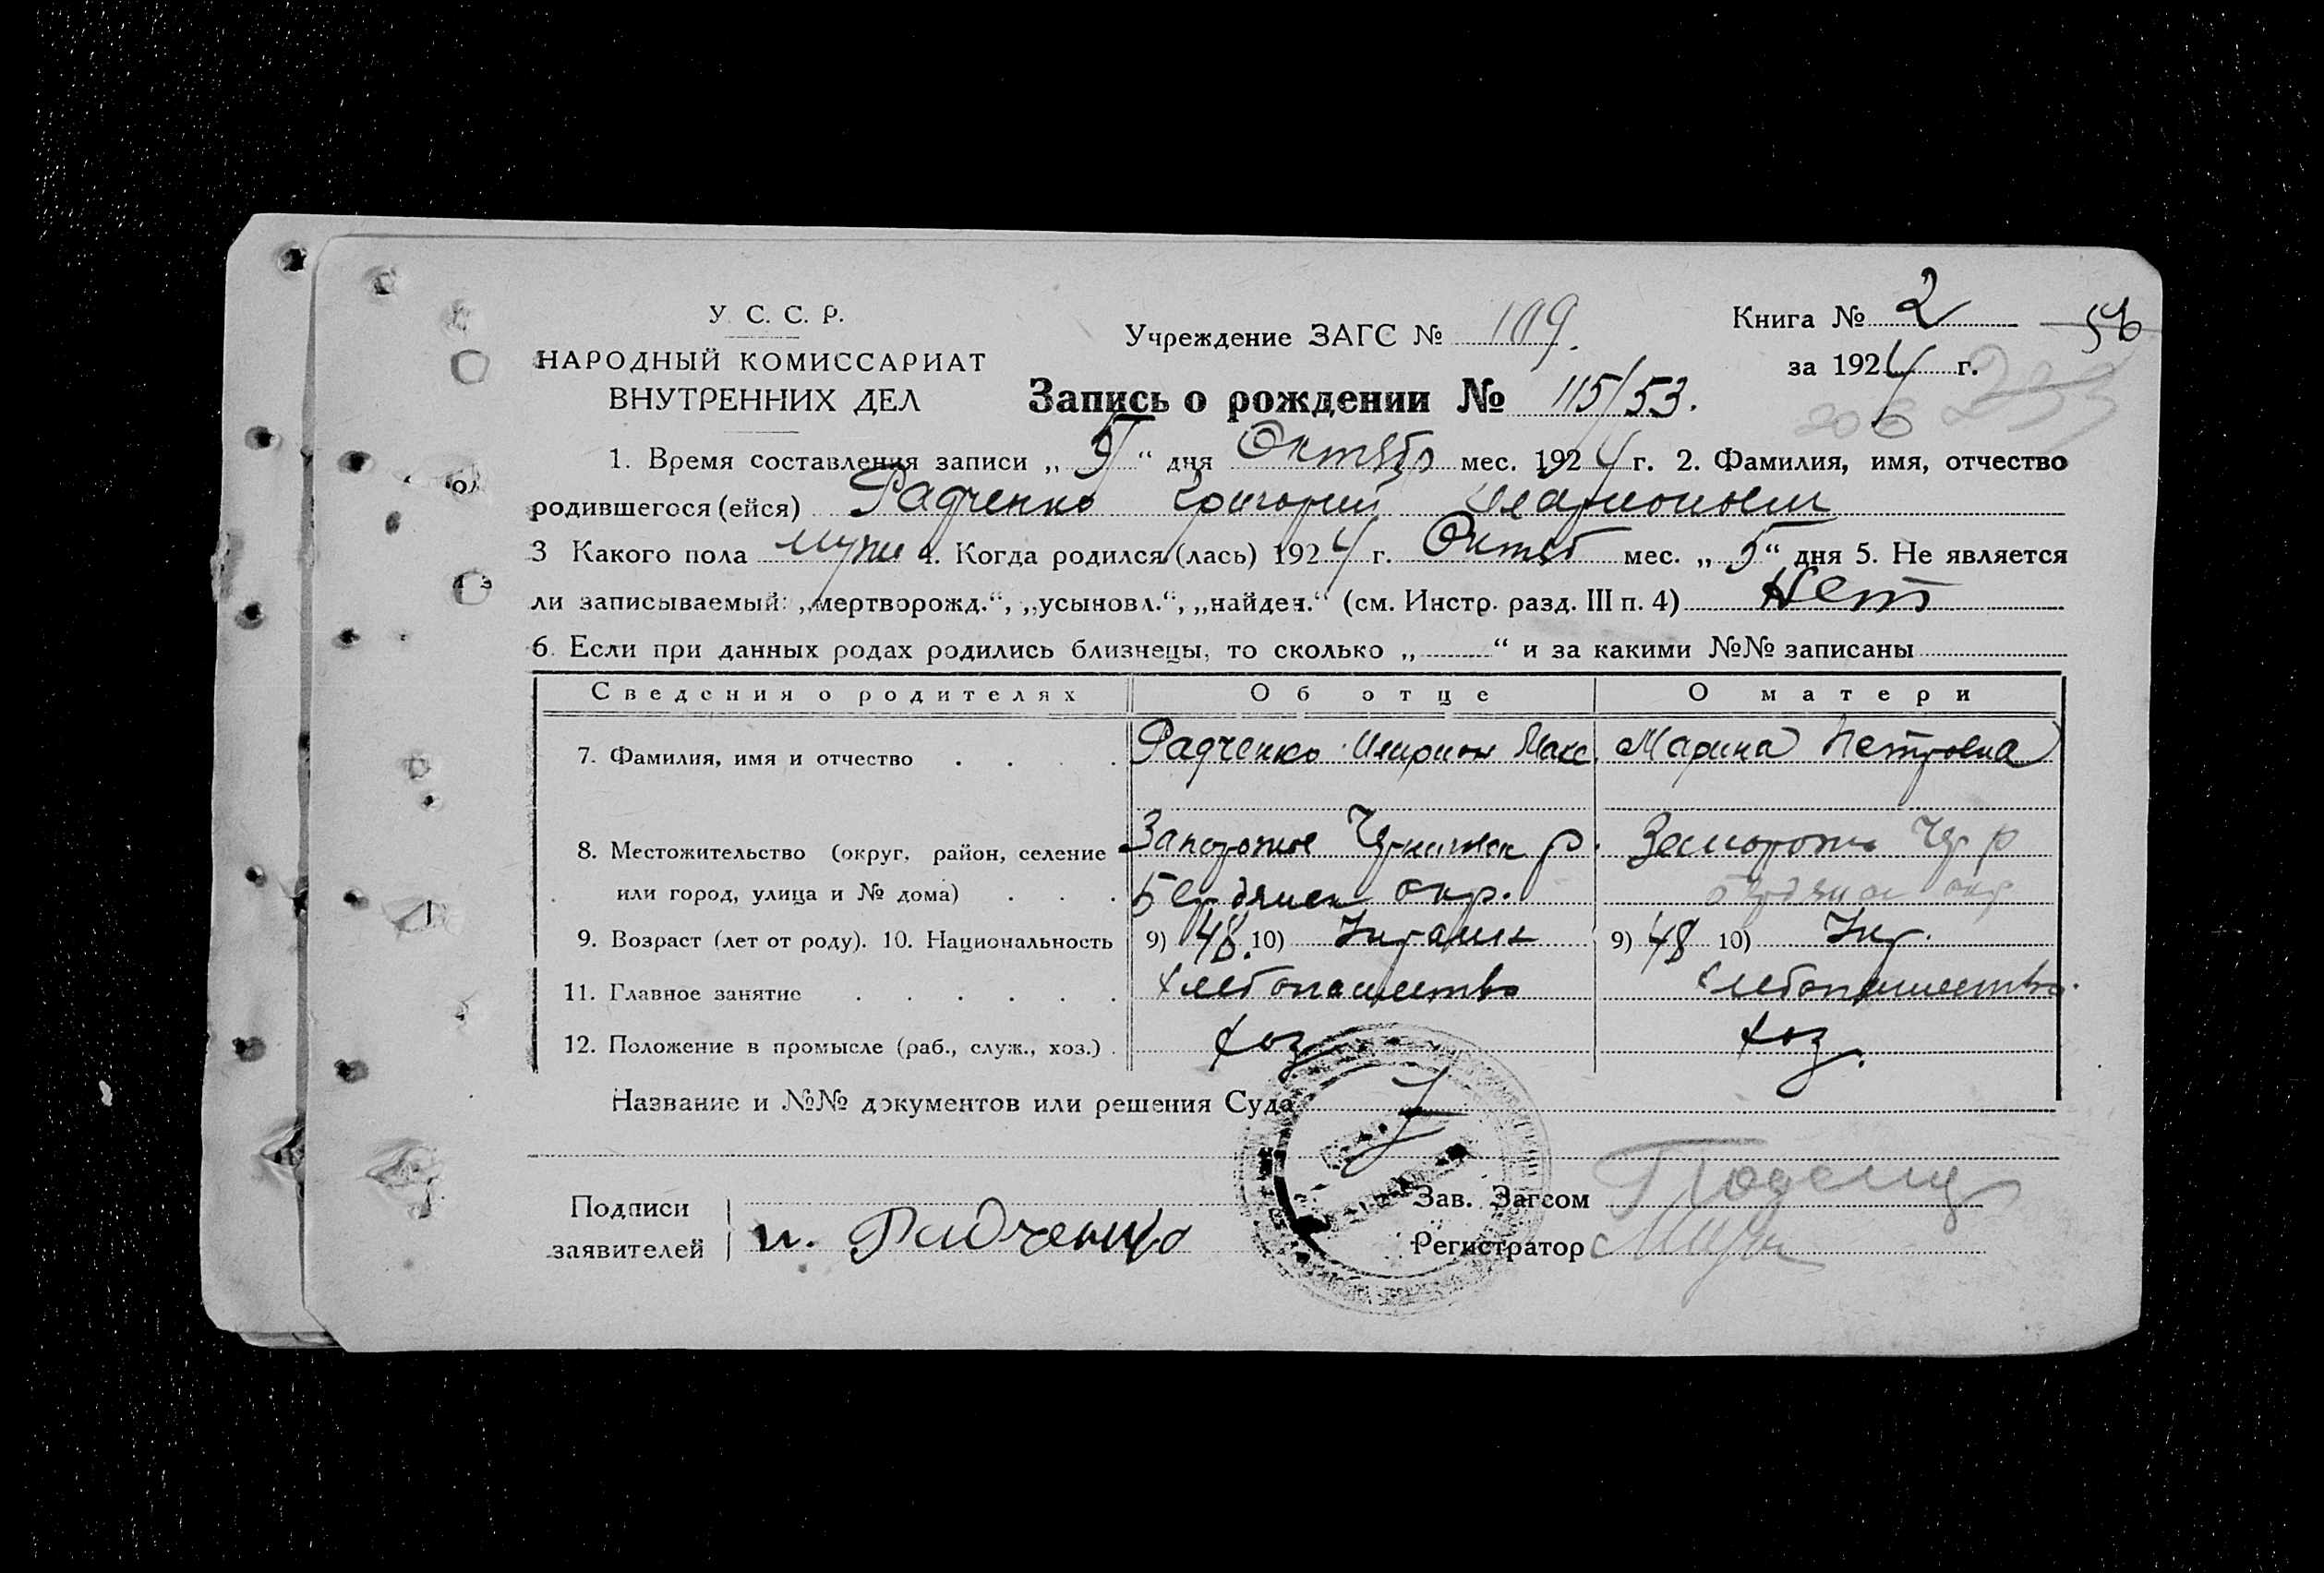 У. С. С. Р.
НАРОДНЫЙ КОМИССАРИАТ
ВНУТРЕННИХ ДЕЛ
Учреждение ЗАГС № 109.
Книга № 2
56
за 1924 г.
206
Запись о рождении № 115/53.
1. Время составления записи „ 5 “ дня Октябр мес. 1924 г. 2. Фамилия, имя, отчество
родившегося (ейся) Радченко Григорий Иларионови
3 Какого пола муж 4. Когда родился (лась) 1924 г. Октяб мес. „ 5 “ дня 5. Не является
ли записываемый: „мертворожд.“, „усыновл.“, „найден.“ (см. Инстр. разд. III п. 4) Нет
6. Если при данных родах родились близнецы, то сколько „ “ и за какими №№ записаны
Сведения о родителях Об отце О матери
7. Фамилия, имя и отчество . . . . Радченко Иларион Макс. Марина Петровна
8. Местожительство (округ, район, селение Запорожье р. р
или город, улица и № дома) . . . Бердянск окр. Бердянск окр
9. Возраст (лет от роду). 10. Национальность 9) 48. 10) Украин 9) 48 10) Укр.
11. Главное занятие . . . . . . хлебопашество хлебопашество.
12. Положение в промысле (раб., служ., хоз.) . хоз хоз.
Название и №№ документов или решения Суда
Подписи
заявителей
И. Радченко
Зав. Загсом
Регистратор